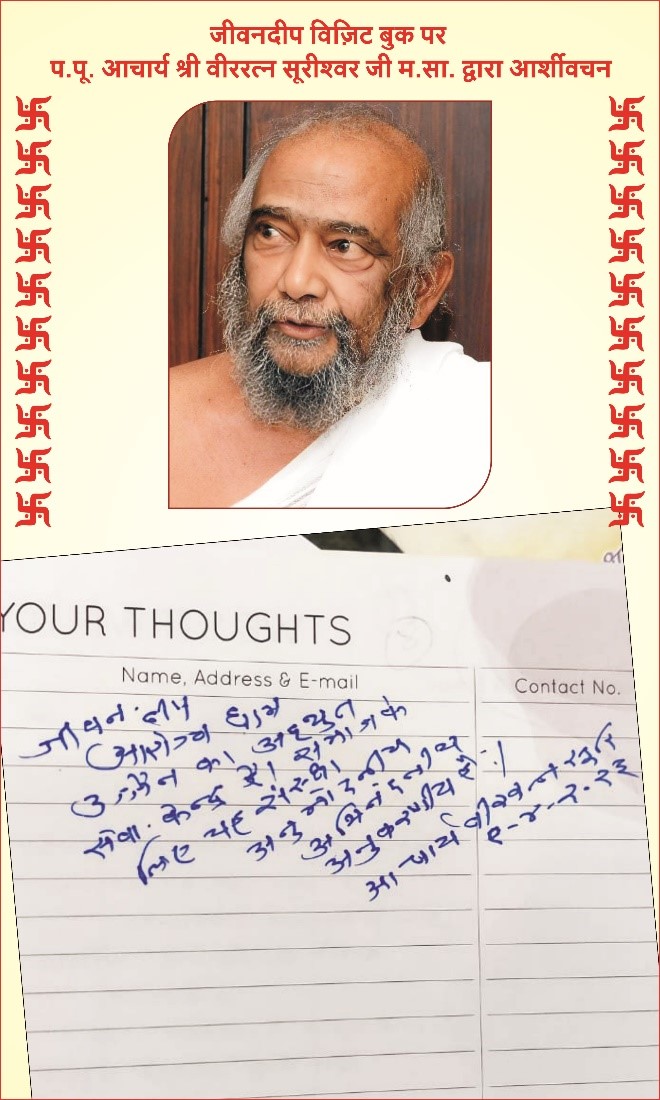 जीवनदीप विज़िट बुक पर
प.पू. आचार्य श्री वीररत्न सूरीश्वर जी म.सा. द्वारा आर्शीवचन
YOUR THOUGHTS
Name, Address & E-mail
Contact No.
जीवन दीप
आरोग्य धाम
उज्जैन का अद्भुत
सेवा केन्द्र है। समाज के
लिए यह संस्था
अनुमोदनीय
अभिनंदनीय
अनुकरणीय है।
आचार्य वीररत्न सूरि